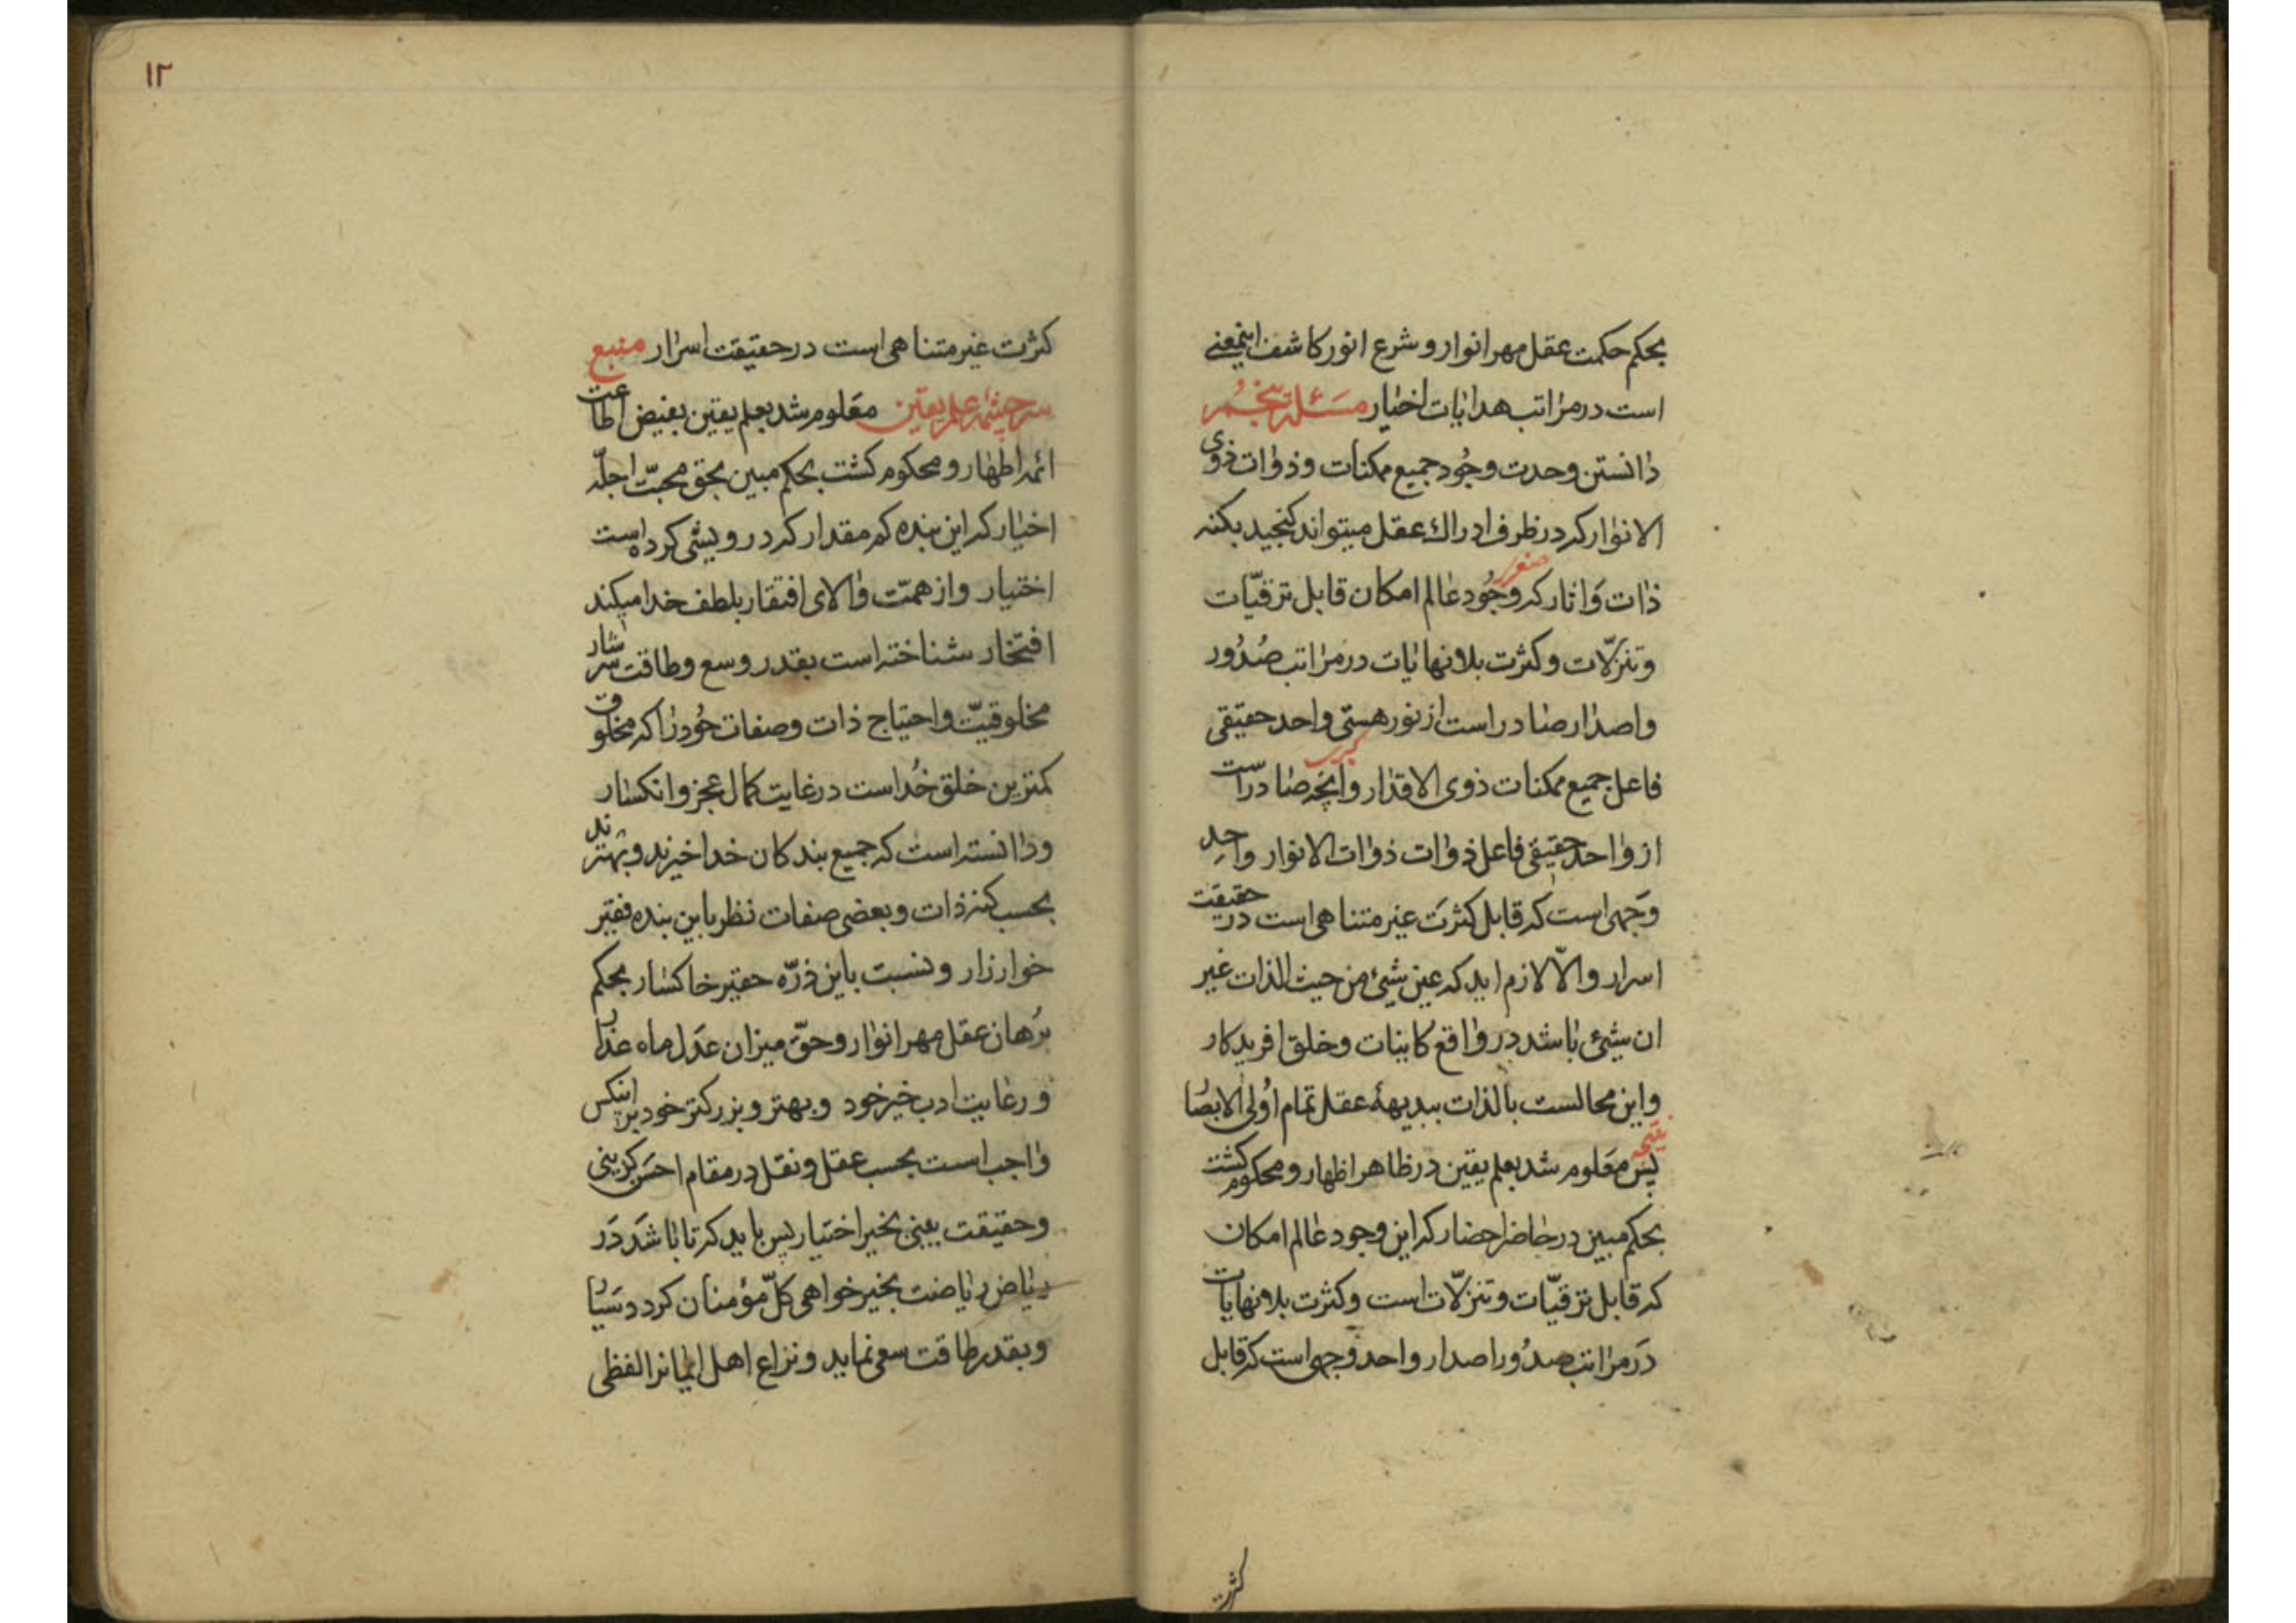 بحکم حکمت عقل مهر انوار و شرع انور کاشف اینمعنی
است در مراتب هدایات اخیار مسئلة پنجم
دانستن وحدت وجود جمیع ممکنات و ذوات ذوی
الانوار که در ظرف ادراک عقل میتواند کنجید بکنه
صغری
ذات و اثار که وجود عالم امکان قابل ترقیّات
و تنزلّات و کثرت بلا نهایات در مراتب صدور
و اصدار صادر است از نور هستی واحد حقیقی
کبری
فاعل جمیع ممکنات ذوی الاقدار و انچه صادراست
از واحد حقیقی فاعل ذوات ذوات الانوار واحد
وجهی است که قابل کثرت غیر متناهی است در حقیقت
اسرار و الّا لازم اید که عین شیئ من حیث الذات غیر
ان شیئ باشد در واقع کاینات و خلق افریدکار
و این محالست بالذات ببدیههٔ عقل تمام اولی الابصا
نتیجه
پس معلوم شد بعلم یقین در ظاهر اظهار و محکوم کشت
بحکم مبین در حاضر احضار که این وجود عالم امکان
که قابل ترقیّات و تنزلّات است و کثرت بلا نهایات
در مراتب صدور اصدار واحد وجهی است که قابل
کثرت
١٢
کثرت غیر متناهی است در حقیقت اسرار منبع
سرچشمه علم یقین معلوم شد بعلم یقین بفیض اطاعت
ائمه اطهار و محکوم کشت بحکم مبین بحق محبّت اجلّه
اخیار که این بنده کم مقدار که درویشی کرده است
اختیار و از همّت والای افتقار بلطف خدا میکند
افتخار شناخته است بقدر وسع و طاقت سرشار
مخلوقیّت و احتیاج ذات و صفات خود را که مخلوق
کمترین خلق خداست در غایت کمال عجز و انکسار
و دانسته است که جمیع بندکان خدا خیرند و بهترند
بحسب کنه ذات و بعضی صفات نظر باین بنده فقیر
خوار زار و نسبت باین ذرّه حقیر خاکسار بحکم
برهان عقل مهر انوار و حقّ میزان عدل ماه عذار
و رعایت ادب خیر خود و بهتر و بزرکتر خود بر اینکس
واجب است بحسب عقل و نقل در مقام احسن کزینی
و حقیقت بینی بخیر اختیار پس باید که تا باشد در
ریاض ریاضت بخیرخواهی کلّ مؤمنان کرد
و بقدر طاقت سعی نماید و نزاع اهل ایمانرا لفظی